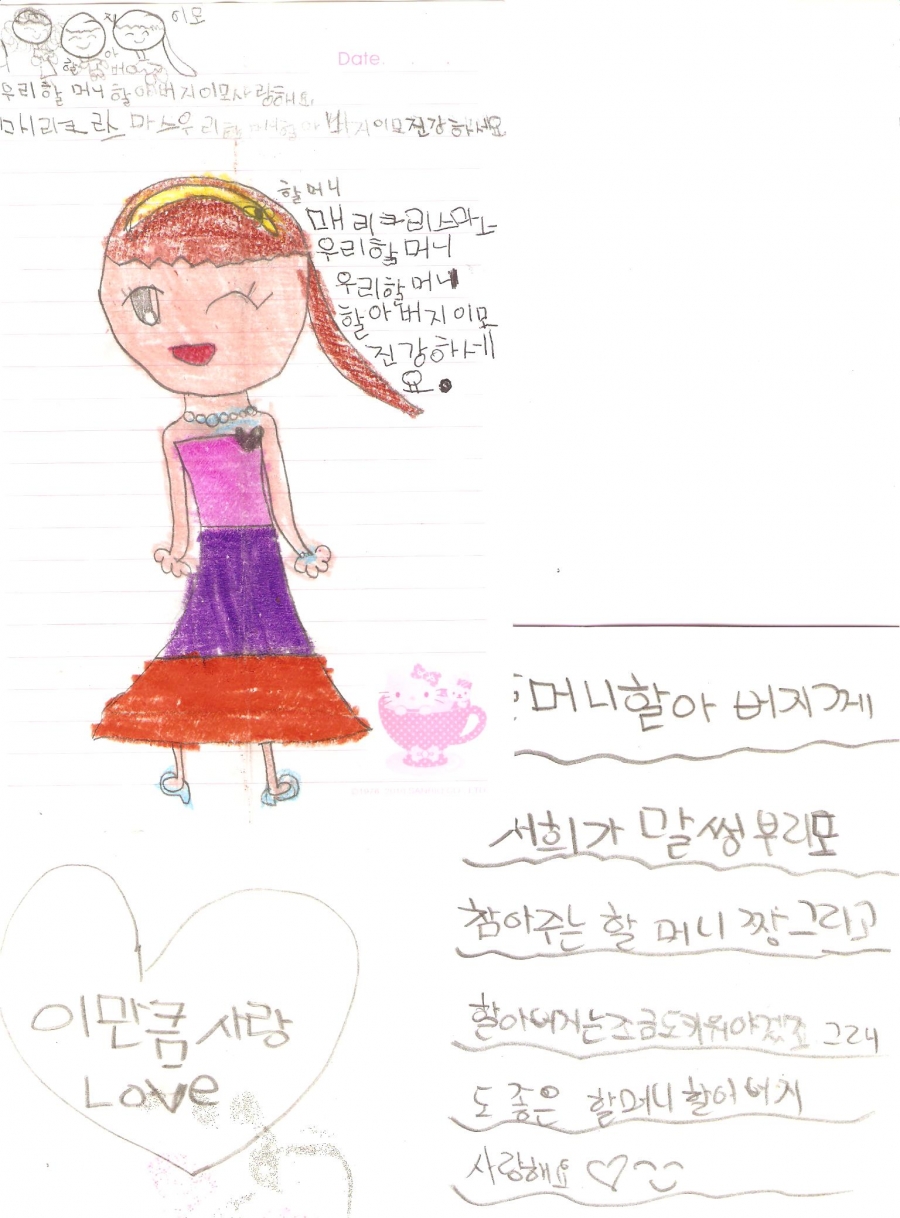 이모
할아버지
Date.
우리할머니할아버지이모사랑해요
마스우리할머니할아버지이모건강하세요
할머니
매리크리스마스
우리할머니
우리할머니
할아버지이모
건강하세
요.
머니할아버지께
서희가 말썽부리면
참아주는 할머니 짱그리고
할아버지는조금도키워야겠죠 그래
도 좋은 할머니할아버지
사랑해요
이만큼사랑
Love